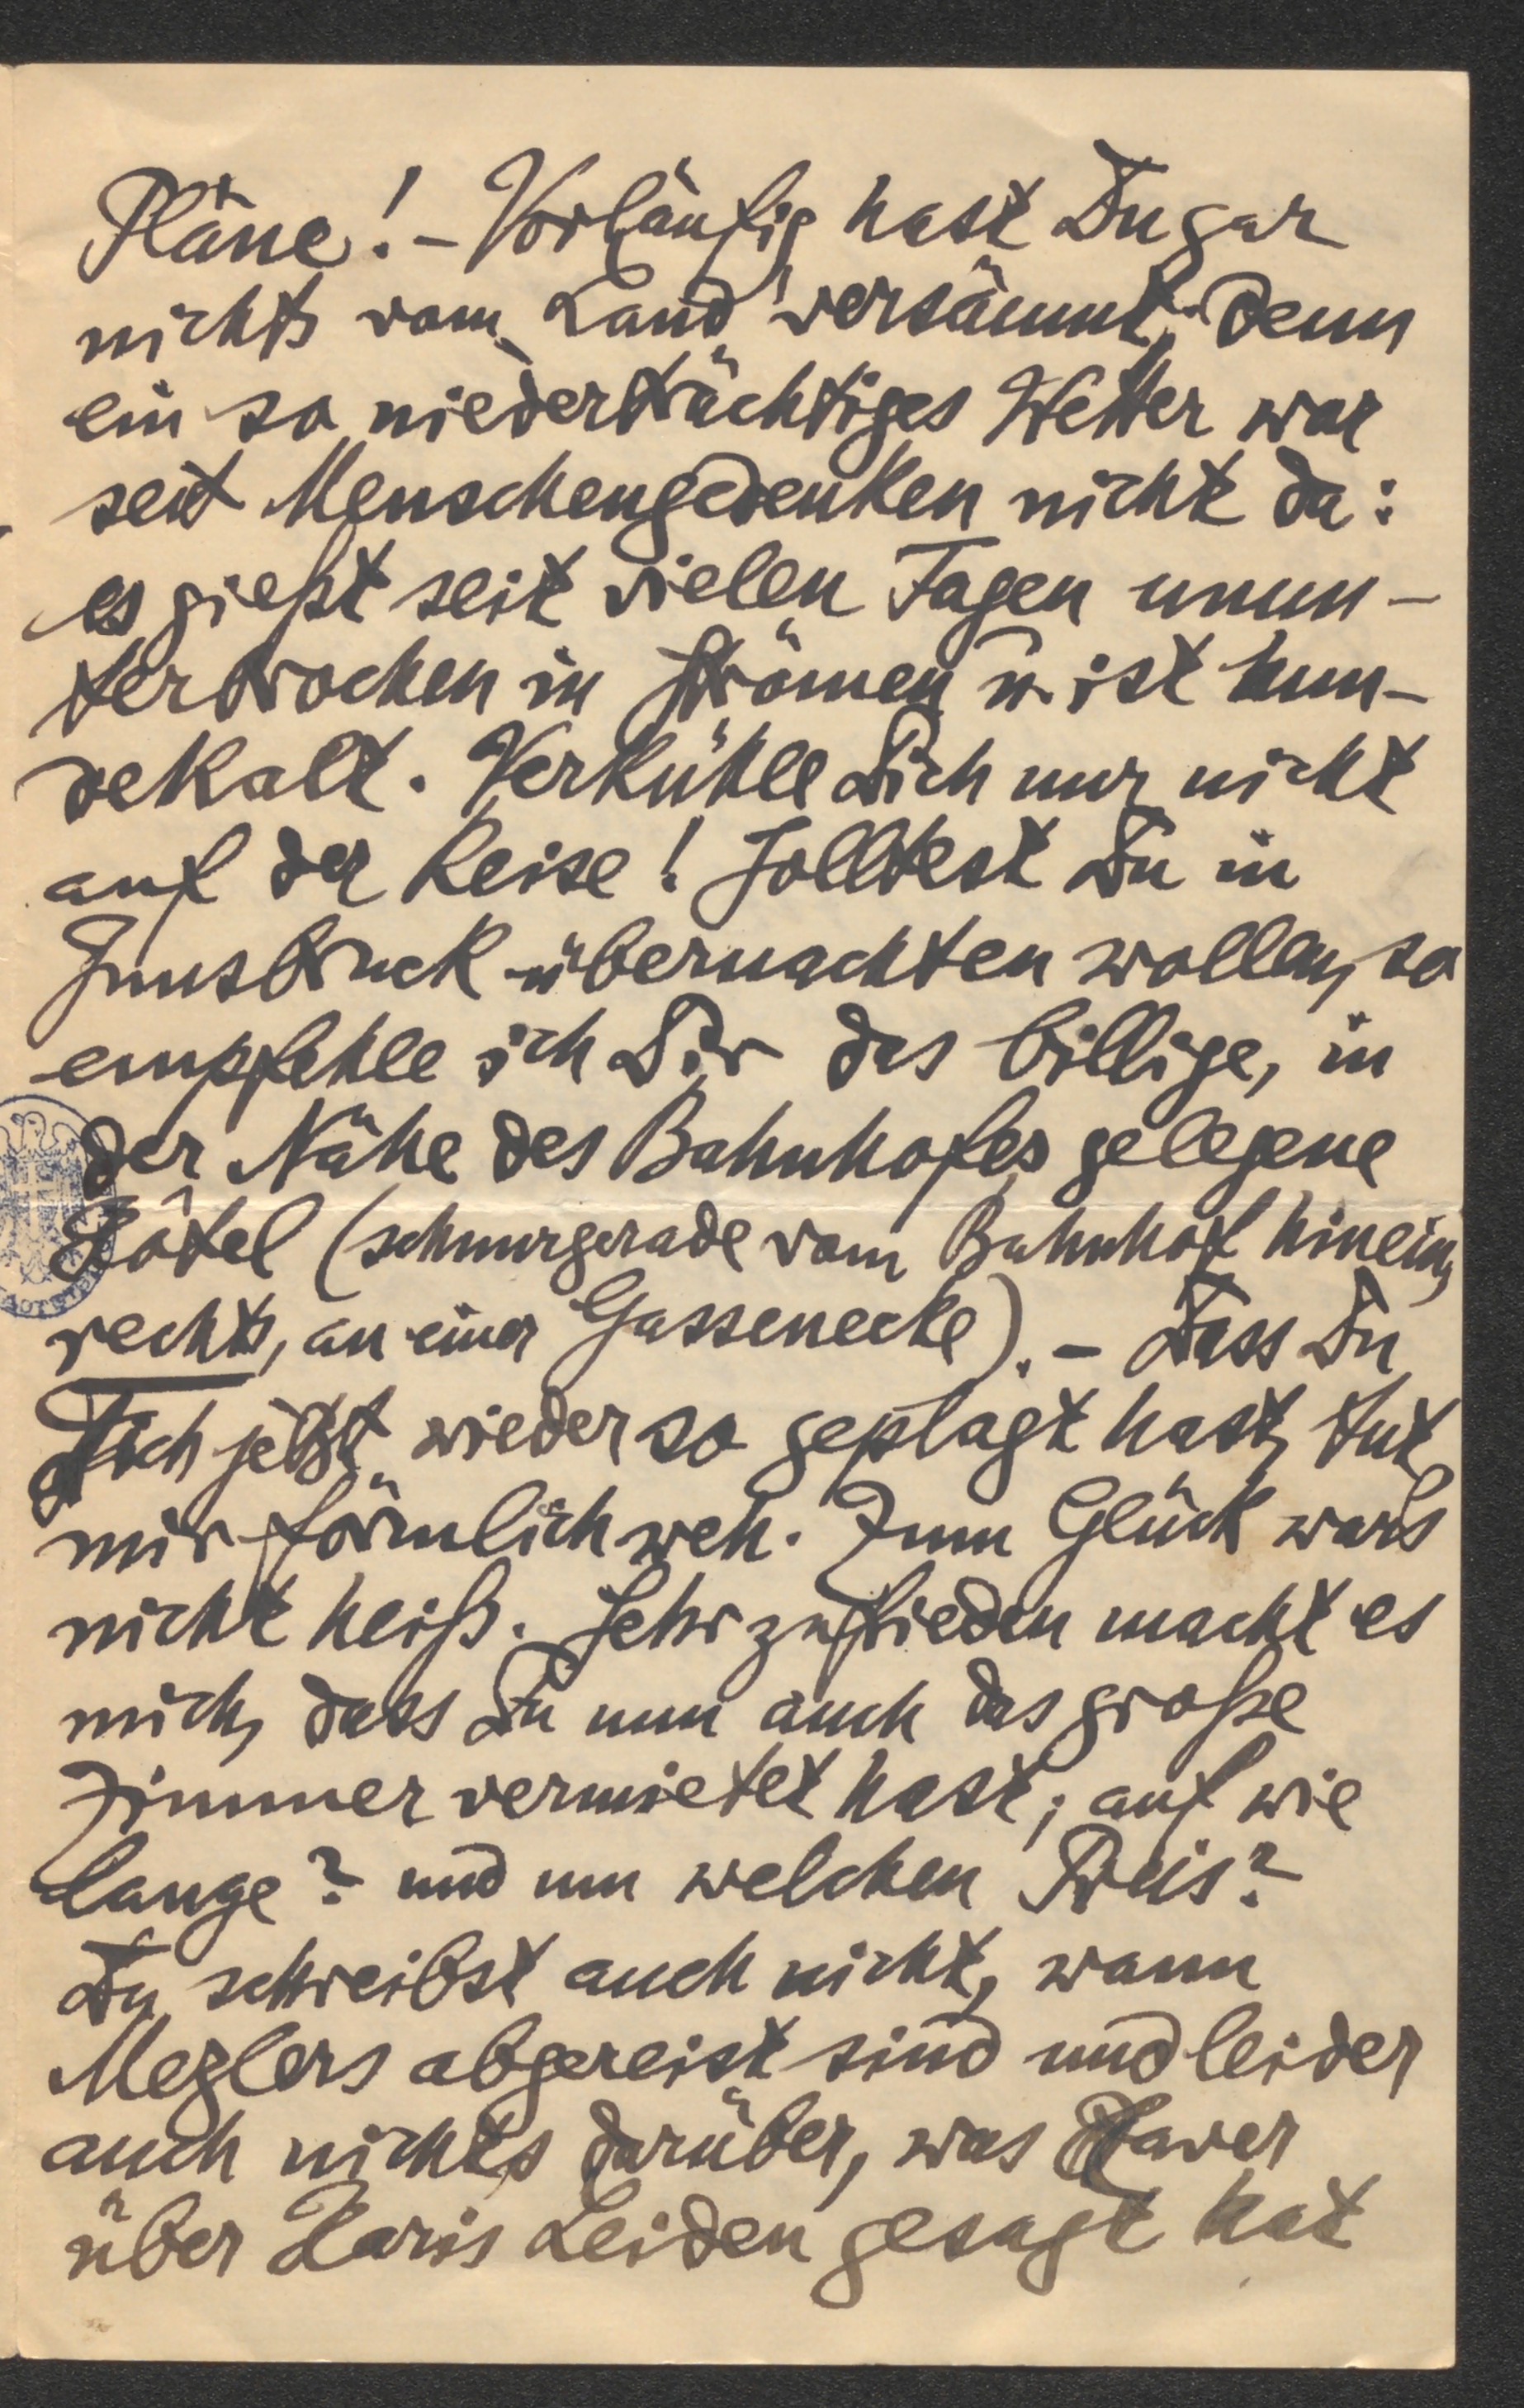 Pläne! – Vorläufig hast Du gar
nichts vom „Land" versäumt, denn
ein so niederträchtiges Wetter war
seit Menschengedenken nicht da:
es gießt seit vielen Tagen unun-
terbrochen in Strömen u. ist hun-
dekalt. Verkühle Dich nur nicht
auf der Reise! Solltest Du in
Innsbruck übernachten wollen, so
empfehle ich Dir das billige, in
der Nähe des Bahnhofes gelegene
Hôtel (schnurgerade vom Bahnhof hinein,
rechts, an einer Gassenecke). – Dass Du
Dich jetzt wieder so geplagt hast, tut
mir förmlich weh. Zum Glück wars
nicht heiß. Sehr zufrieden macht es
mich, dass Du nun auch das große
Zimmer vermietet hast; auf wie
lange? und um welchen Preis?
Du schreibst auch nicht, wann
Mezlers abgereist sind und leider
auch nichts darüber, was
über Haris Leiden gesagt hat